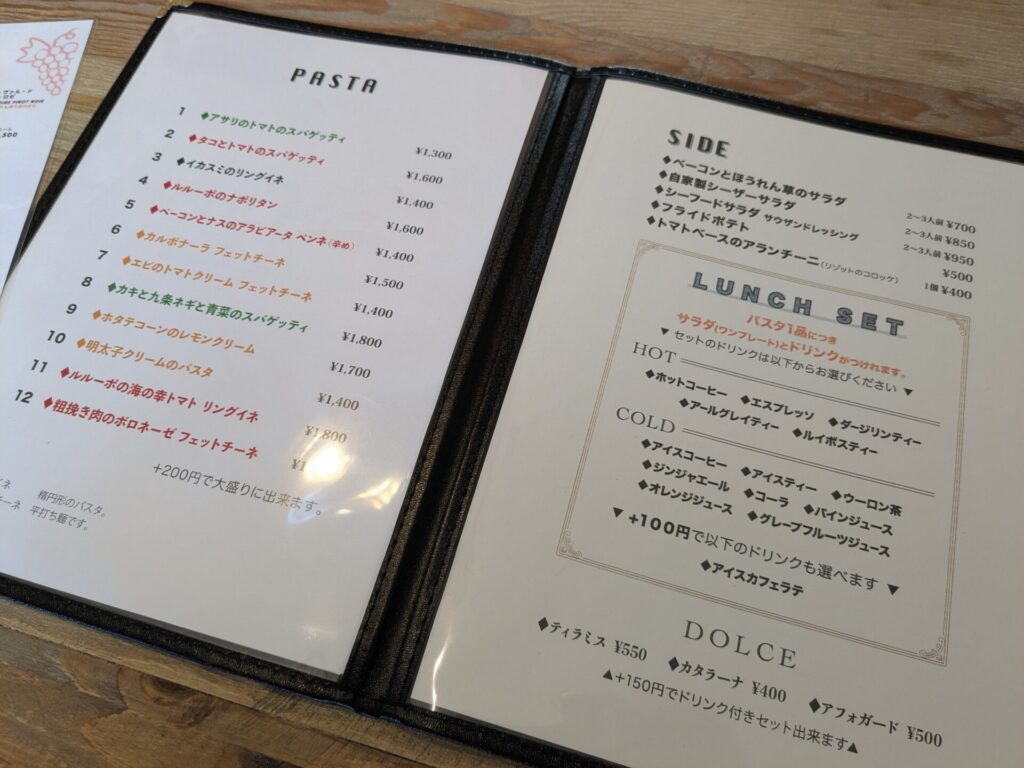 PASTA
1 ◆アサリのトマトのスパゲッティ ¥1,300
2 ◆タコとトマトのスパゲッティ ¥1,600
3 ◆イカスミのリングイネ ¥1,400
4 ◆ルルーポのナポリタン ¥1,600
5 ◆ベーコンとナスのアラビアータ ペンネ(辛め) ¥1,400
6 ◆カルボナーラ フェットチーネ ¥1,500
7 ◆エビのトマトクリーム フェットチーネ ¥1,400
8 ◆カキと九条ネギと青菜のスパゲッティ ¥1,800
9 ◆ホタテコーンのレモンクリーム ¥1,700
10 ◆明太子クリームのパスタ ¥1,400
11 ◆ルルーポの海の幸トマト リングイネ ¥1,800
12 ◆粗挽き肉のボロネーゼ フェットチーネ
+200円で大盛りに出来ます。
イネ 楕円形のパスタ。
チーネ 平打ち麺です。
SIDE
◆ベーコンとほうれん草のサラダ 2〜3人前 ¥700
◆自家製シーザーサラダ 2〜3人前 ¥850
◆シーフードサラダ サウザンドレッシング 2〜3人前 ¥950
◆フライドポテト ¥500
◆トマトベースのアランチーニ(リゾットのコロッケ) 1個 ¥400
LUNCH SET
パスタ1品につき
サラダ(ワンプレート)とドリンクがつけれます。
▼ セットのドリンクは以下からお選びください ▼
HOT
◆ホットコーヒー ◆エスプレッソ ◆ダージリンティー
◆アールグレイティー ◆ルイボスティー
COLD
◆アイスコーヒー ◆アイスティー ◆ウーロン茶
◆ジンジャエール ◆コーラ ◆パインジュース
◆オレンジジュース ◆グレープフルーツジュース
▼ +100円で以下のドリンクも選べます ▼
◆アイスカフェラテ
DOLCE
◆ティラミス ¥550 ◆カタラーナ ¥400 ◆アフォガード ¥500
▲+150円でドリンク付きセット出来ます▲